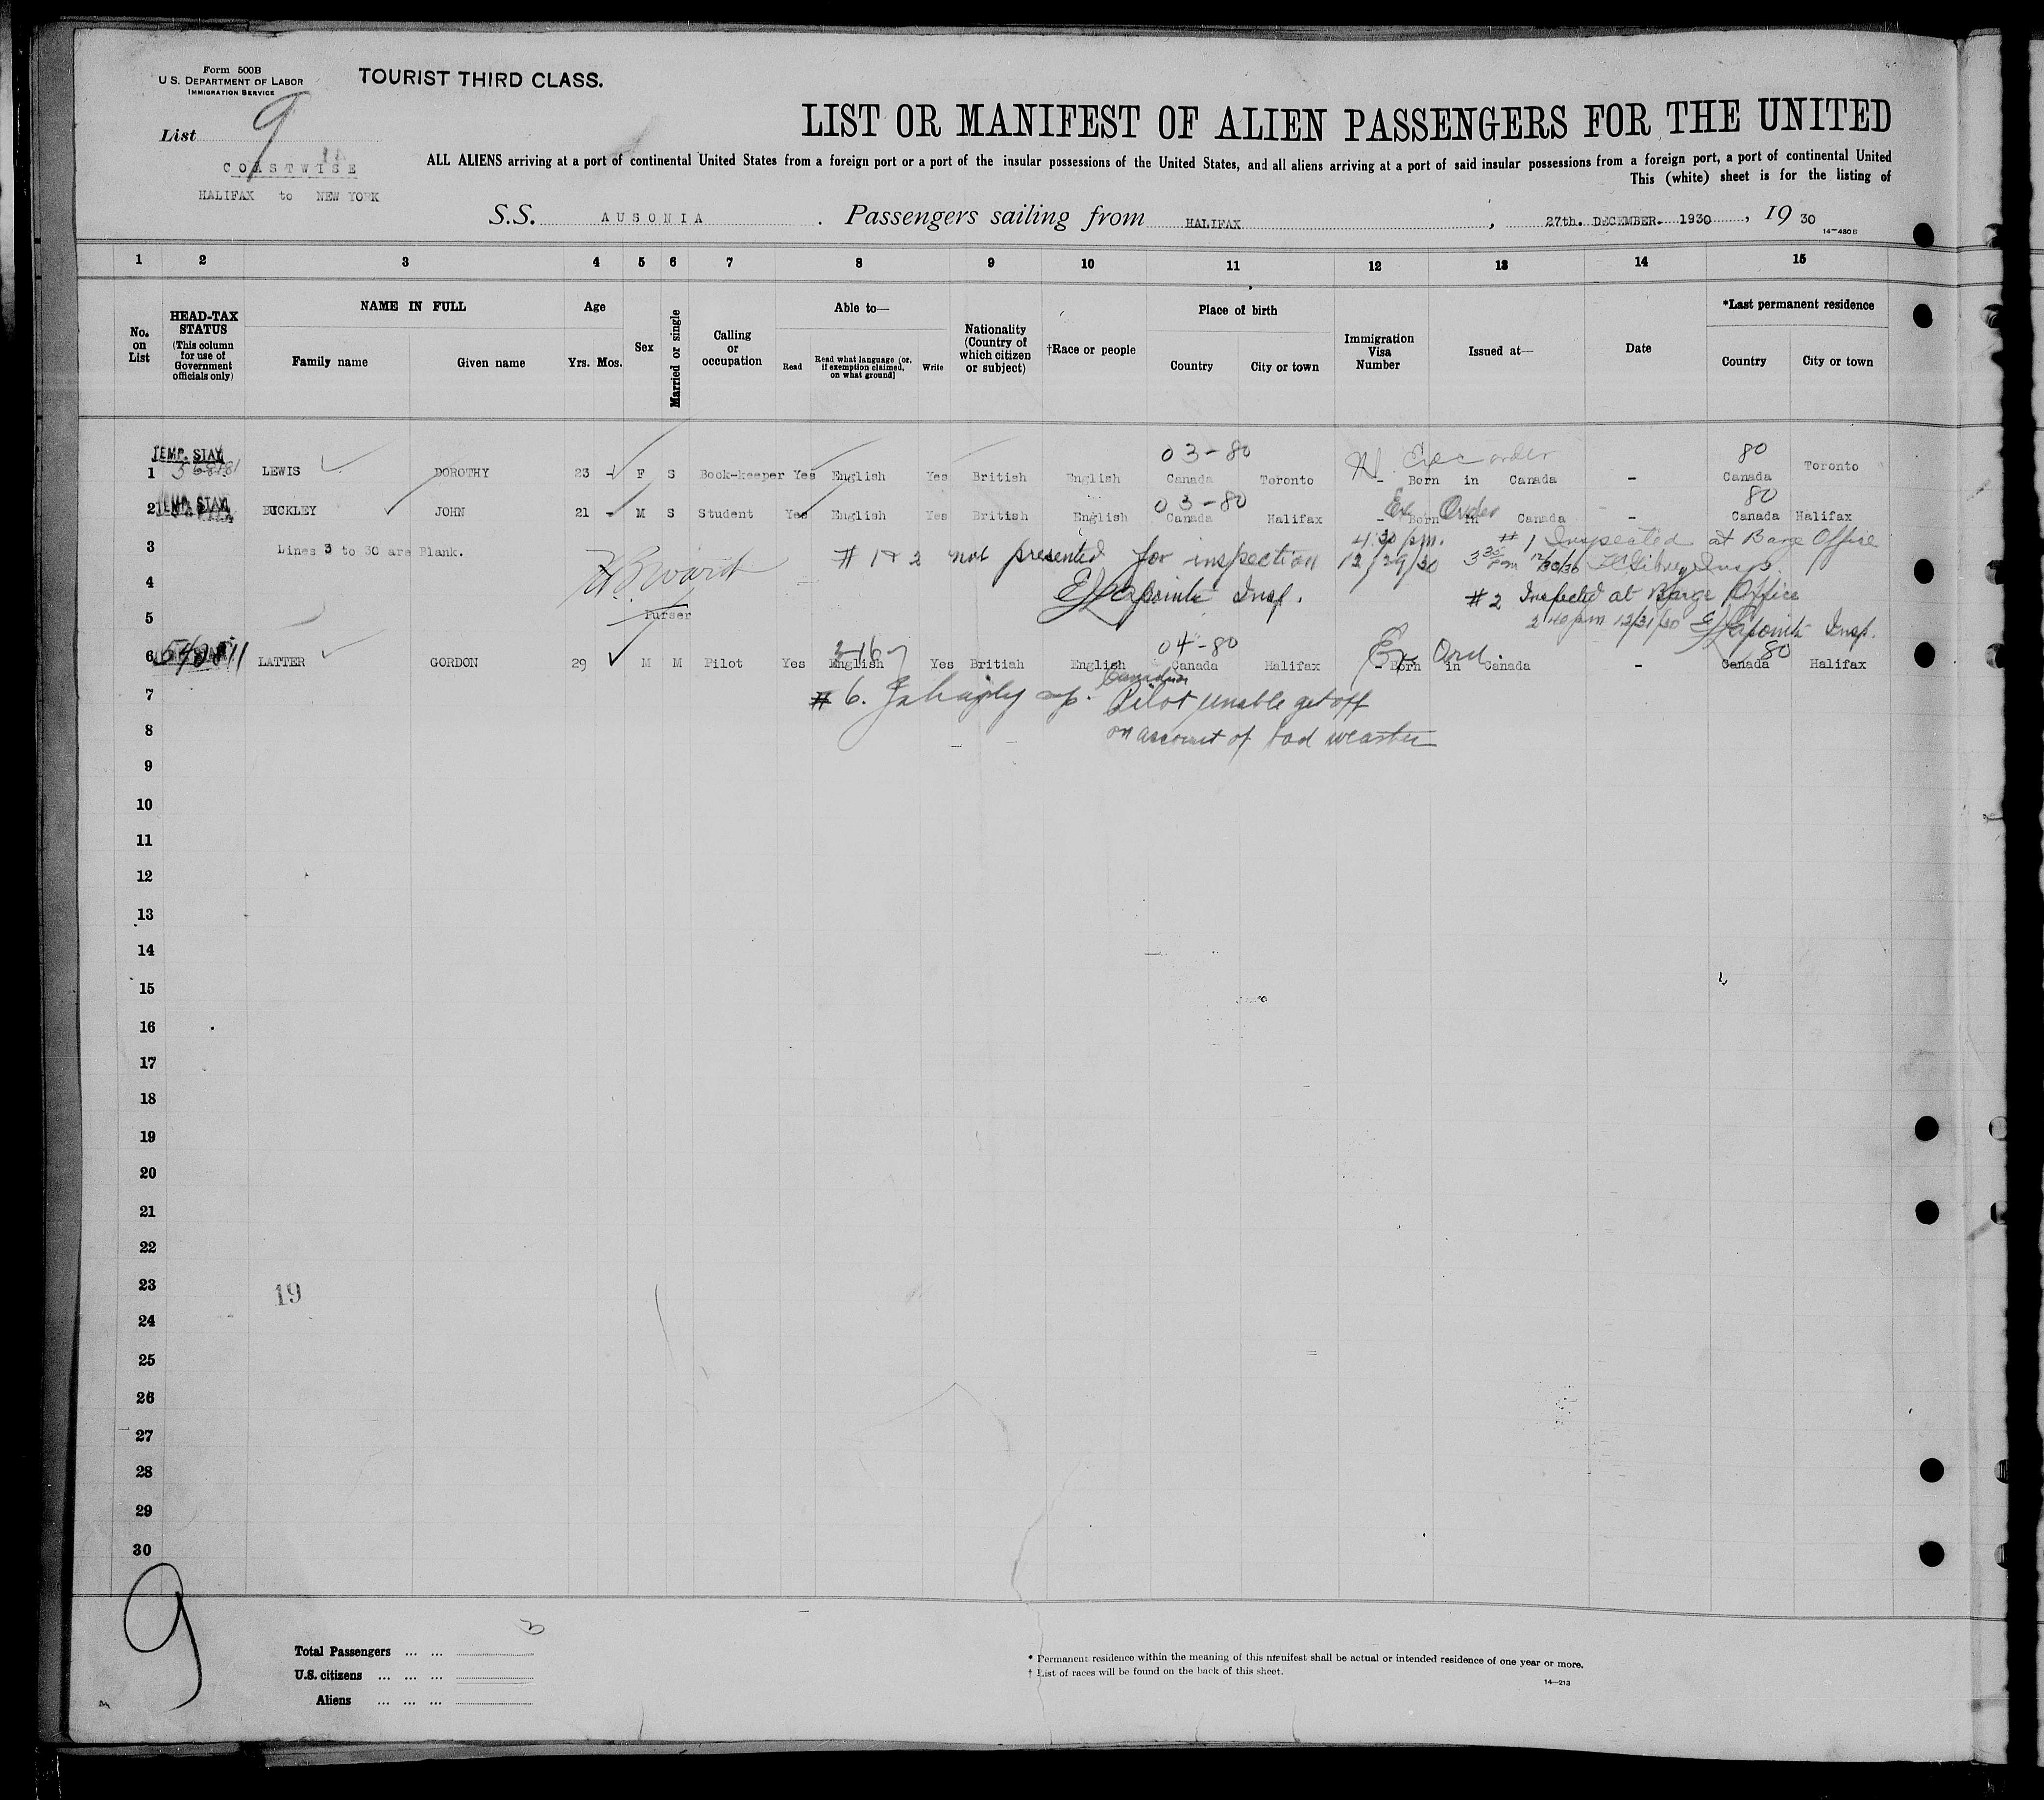 Form 500B
U.S. DEPARTMENT OF LABOR
IMMIGRATION SERVICE
TOURIST THIRD CLASS.
List 9
COASTWISE
HALIFAX to NEW YORK
LIST OR MANIFEST OF ALIEN PASSENGERS FOR THE UNITED
ALL ALIENS arriving at a port of continental United States from a foreign port or a port of the insular possessions of the United States, and all aliens arriving at a port of said insular possessions from a foreign port, a port of continental United
This (white) sheet is for the listing of
S.S. AUSONIA. Passengers sailing from HALIFAX, 27th. DECEMBER. 1930, 19 30
14-480B
1 2 3 4 5 6 7 8 9 10 11 12 13 14 15
No. on List
HEAD-TAX STATUS
(This column for use of Government officials only)
NAME IN FULL
Family name
Given name
Age
Yrs. Mos.
Sex
Married or single
Calling or occupation
Able to—
Read
Read what language (or, if exemption claimed, on what ground)
Write
Nationality (Country of which citizen or subject)
†Race or people
Place of birth
Country
City or town
Immigration Visa Number
Issued at—
Date
*Last permanent residence
Country
City or town
TEMP. STAY 03-80 80
1 LEWIS DOROTHY 23 F S Book-keeper Yes English Yes British English Canada Toronto - Born in Canada - Canada Toronto
TEMP. STAY 03-80 Ex Order 80
2 BUCKLEY JOHN 21 - M S Student Yes English Yes British English Canada Halifax - Born in Canada - Canada Halifax
3 Lines 3 to 30 are Blank.
# 1 & 2 not presented for inspection 4:30 pm. 12/29/30
# 1 Inspected at Barge Office
3 30 pm 12/30/30 Insp.
4 Lapointe Insp.
# 2 Inspected at Barge Office
5 Purser
2 40 pm 12/31/30 Lapointe Insp.
04-80 Ex Ord. 80
6 LATTER GORDON 29 M M Pilot Yes English Yes British English Canada Halifax - Born in Canada - Canada Halifax
7 # 6. Canadian Pilot unable get off
8 on account of bad weather
9
10
11
12
13
14
15
16
17
18
19
20
21
22
23
19
24
25
26
27
28
29
30
9
3
Total Passengers ... ...
U.S. citizens ... ... ...
Aliens ... ... ...
* Permanent residence within the meaning of this manifest shall be actual or intended residence of one year or more.
† List of races will be found on the back of this sheet.
14-213